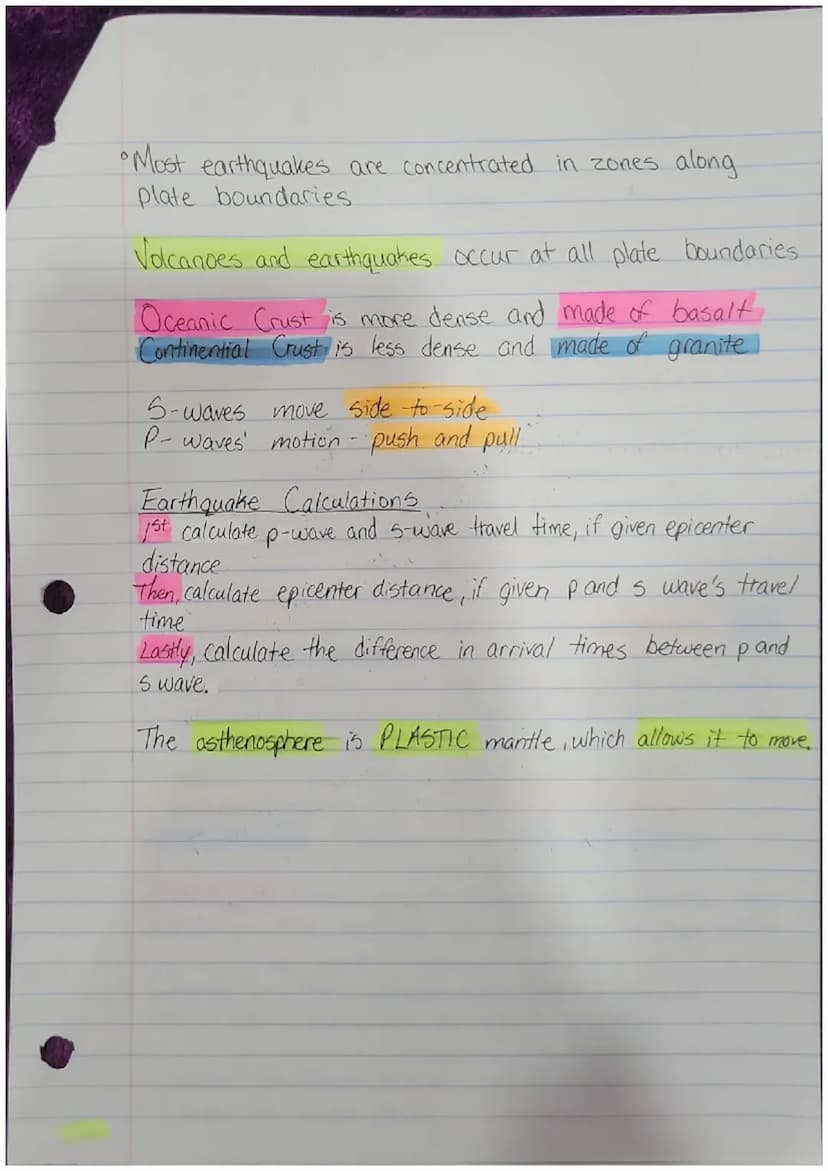 °Most earthquakes are concentrated in zones along
plate boundaries
Volcanoes and earthquakes occur at all plate boundaries
Oceanic Crust is more dense and made of basalt
Continential Crust is less dense and made of granite
S-waves move side-to-side
P-waves' motion - push and pull
Earthquake Calculations
1st calculate p-wave and s-wave travel time, if given epicenter
distance
Then, calculate epicenter distance, if given p and s wave's travel
time
Lastly, calculate the difference in arrival times between p and
s wave.
The asthenosphere is PLASTIC mantle, which allows it to move.